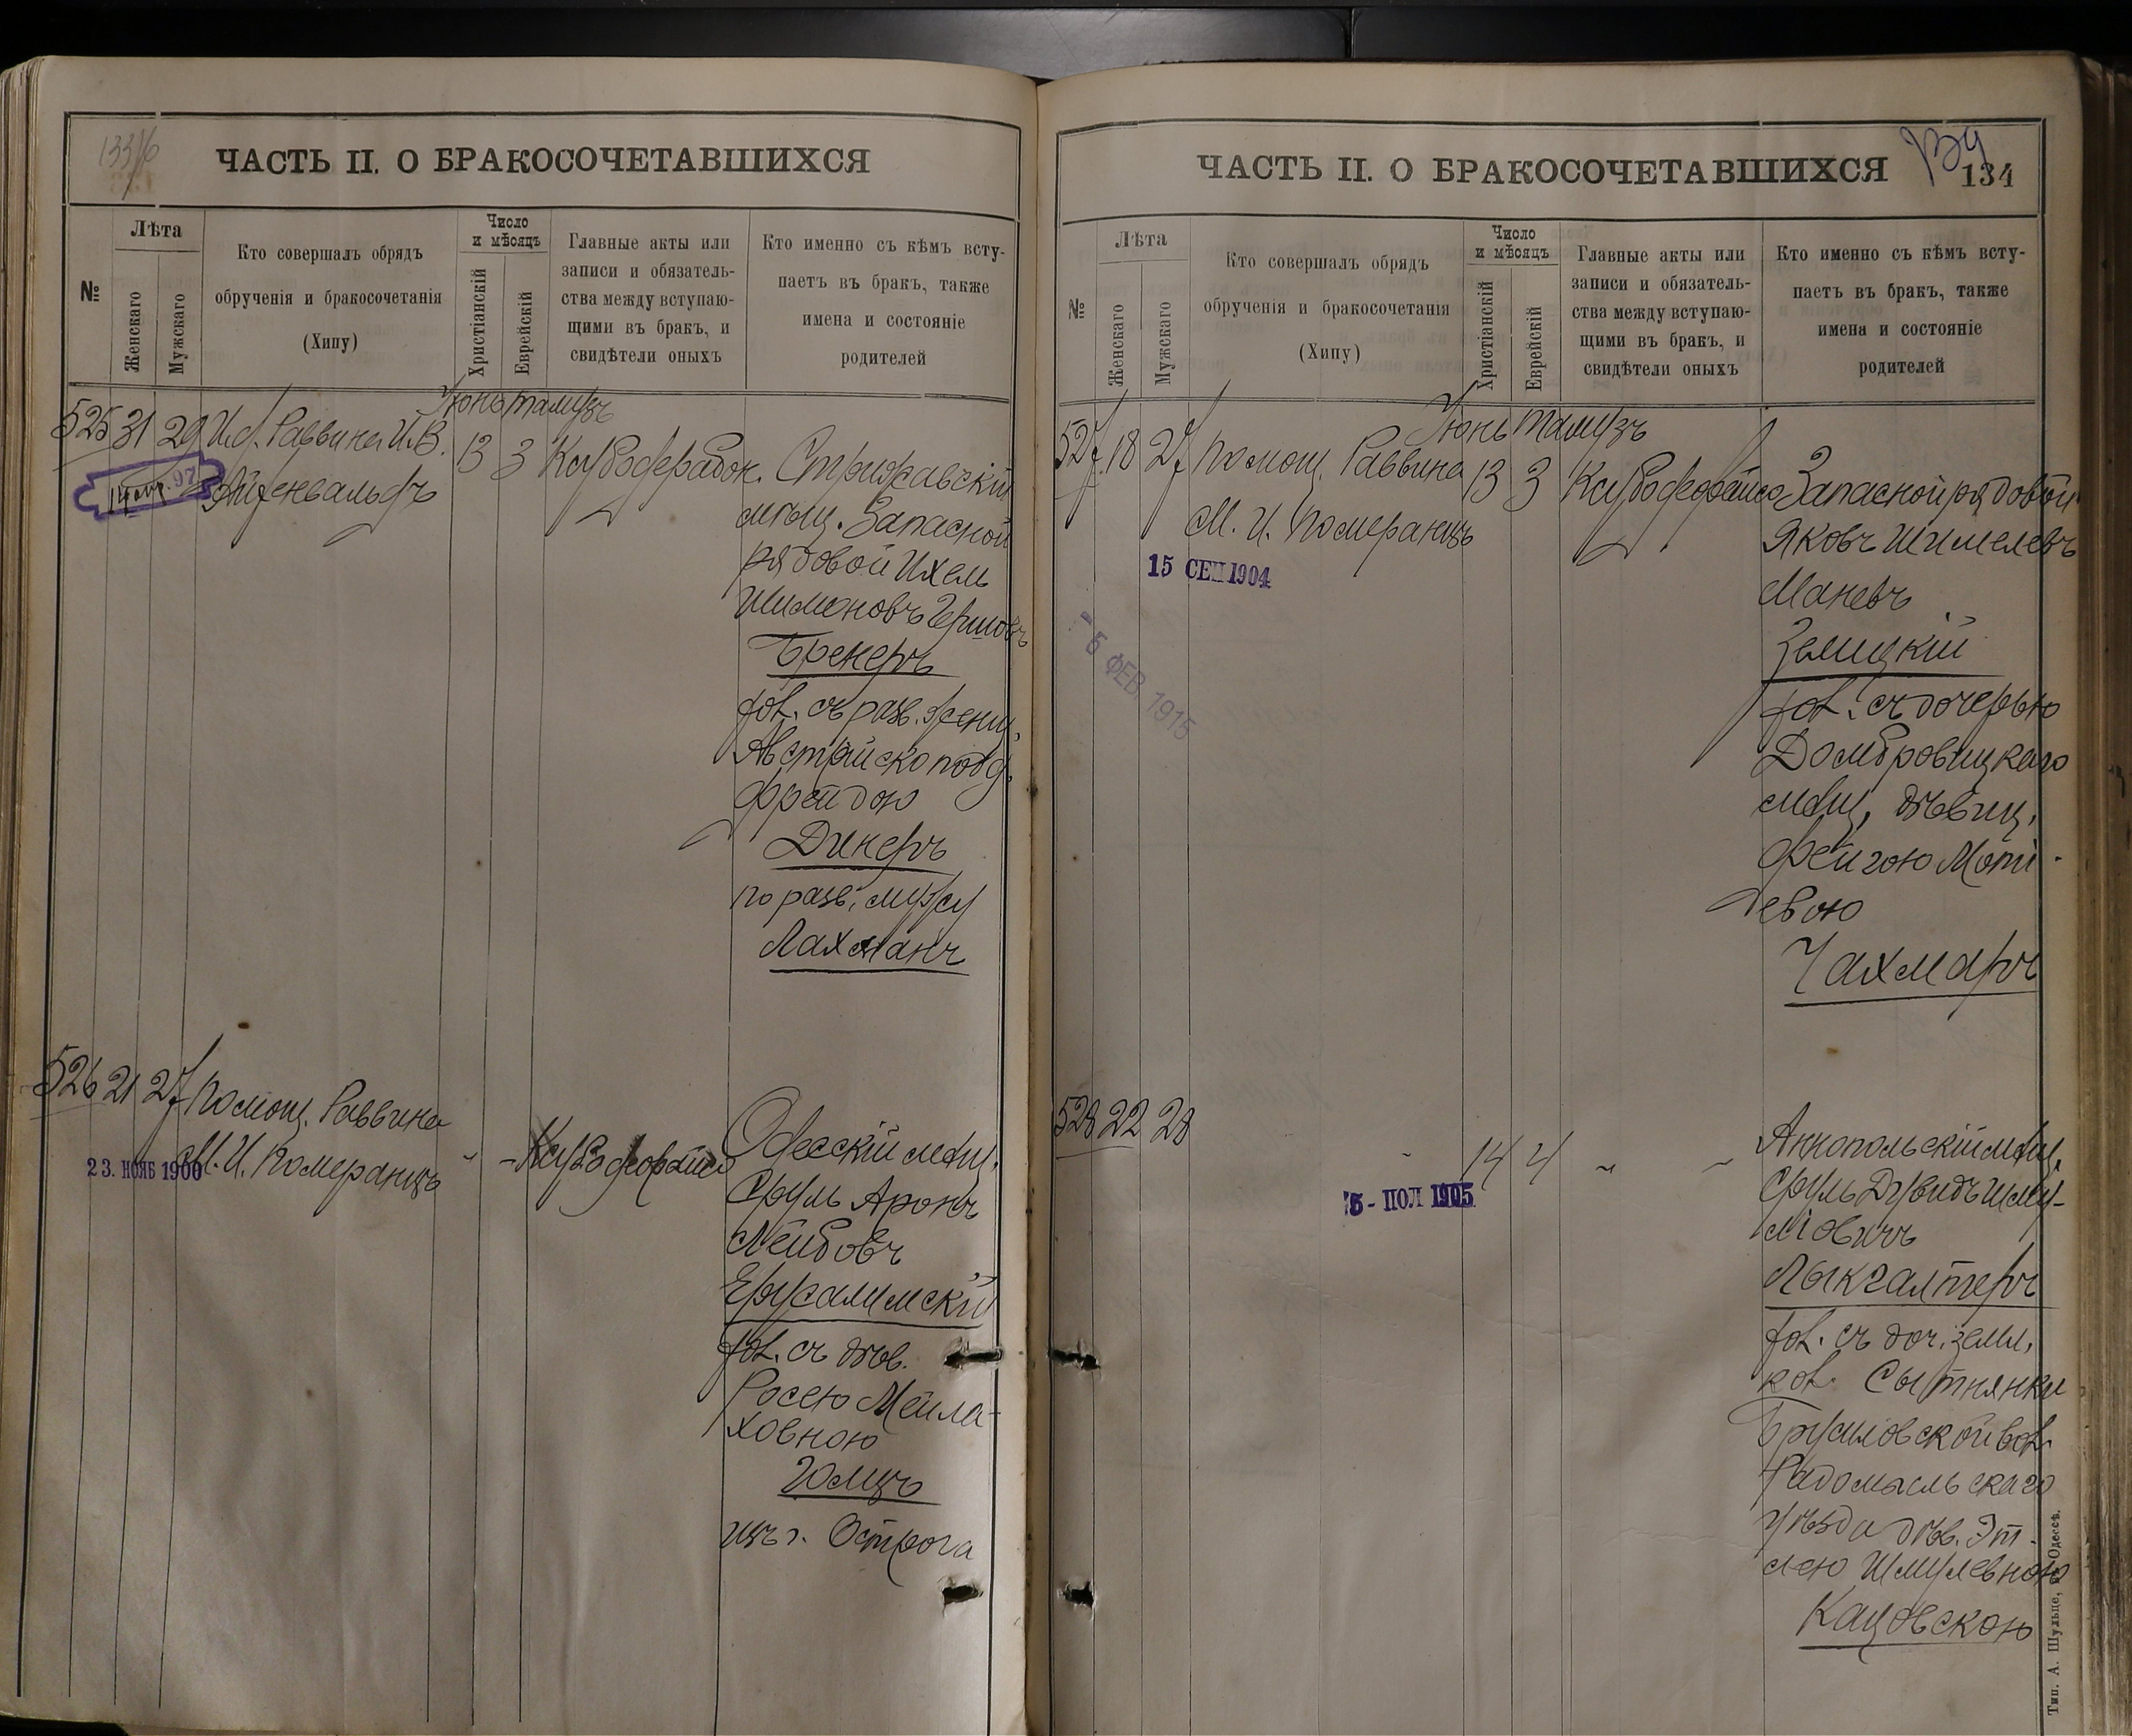 133/б
ЧАСТЬ II. О БРАКОСОЧЕТАВШИХСЯ
№
Лѣта
Женскаго
Мужскаго
Кто совершалъ обрядъ
обрученія и бракосочетанія
(Хипу)
Число
и мѣсяцъ
Христіанскій
Еврейскій
Главные акты или
записи и обязатель-
ства между вступаю-
щими въ бракъ, и
свидѣтели оныхъ
Кто именно съ кѣмъ всту-
паетъ въ бракъ, также
имена и состояніе
родителей
Іюнь Тамузъ
525 31 29 И.д. Раввина И.В.
Айзенвальдъ
97
13 3
мѣщ. Запасной
рядовой Ихель
Шимоновъ Гершовъ
Бренеръ
хол. съ разв. женщ.
Австрійско подд.
Фрейдою
Динеръ
по разв. мужу
Лахманъ
526 21 27 Помощ. Раввина
М. И. Померанцъ
23. НОЯБ 1900
Одесскій мѣщ.
Сруль Аронъ
Лейбовъ
Ерусалимскій
хол. съ дѣв.
Росею Мейла-
ховною
Гомцъ
изъ г. Острога
ЧАСТЬ II. О БРАКОСОЧЕТАВШИХСЯ
134
134
№
Лѣта
Женскаго
Мужскаго
Кто совершалъ обрядъ
обрученія и бракосочетанія
(Хипу)
Число
и мѣсяцъ
Христіанскій
Еврейскій
Главные акты или
записи и обязатель-
ства между вступаю-
щими въ бракъ, и
свидѣтели оныхъ
Кто именно съ кѣмъ всту-
паетъ въ бракъ, также
имена и состояніе
родителей
Іюнь Тамузъ
527 18 27 Помощ. Раввина
М. И. Померанцъ
15 СЕН 1904
- 5 ФЕВ. 1915
13 3
Запасной рядовой
Яковъ Шимелевъ
Маневъ
Зелицкій
хол. съ дочерью
Домбровицкаго
мѣщ. дѣвиц.
Фейгою Моті-
евою
Чахмаръ
528 22 28
5 - ПОЛ 1905
14 4
Аннопольскій мѣщ.
Сруль Дувидъ Шму-
ліовичъ
Лыкгалтеръ
хол. съ доч. земл.
кол. Сытнянки
Брусиловской вол.
Радомысльскаго
уѣзда дѣв. Эт-
лею Шмулевною
Кацовскою
Тип. А. Шульце, въ Одессѣ.